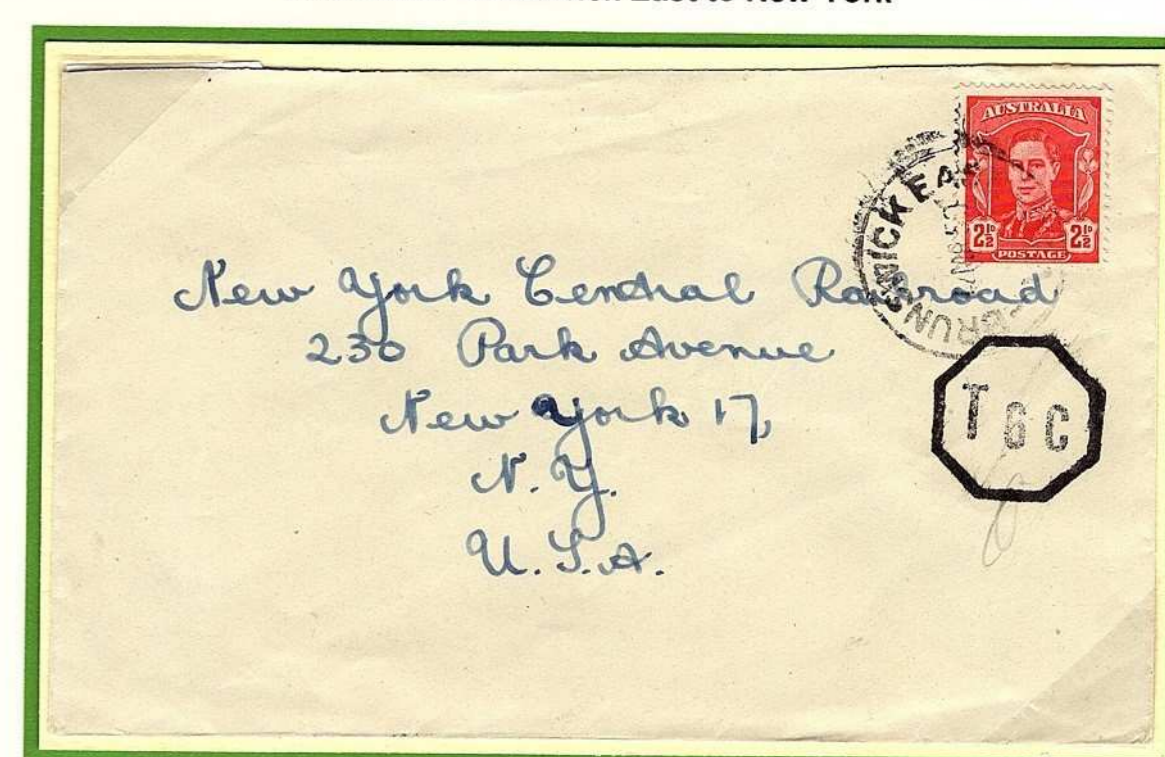 East to New York
AUSTRALIA
2½D 2½D
POSTAGE
BRUNSWICK EA
New York Central Railroad
230 Park Avenue
New York 17,
N.Y.
U.S.A.
T 6 C